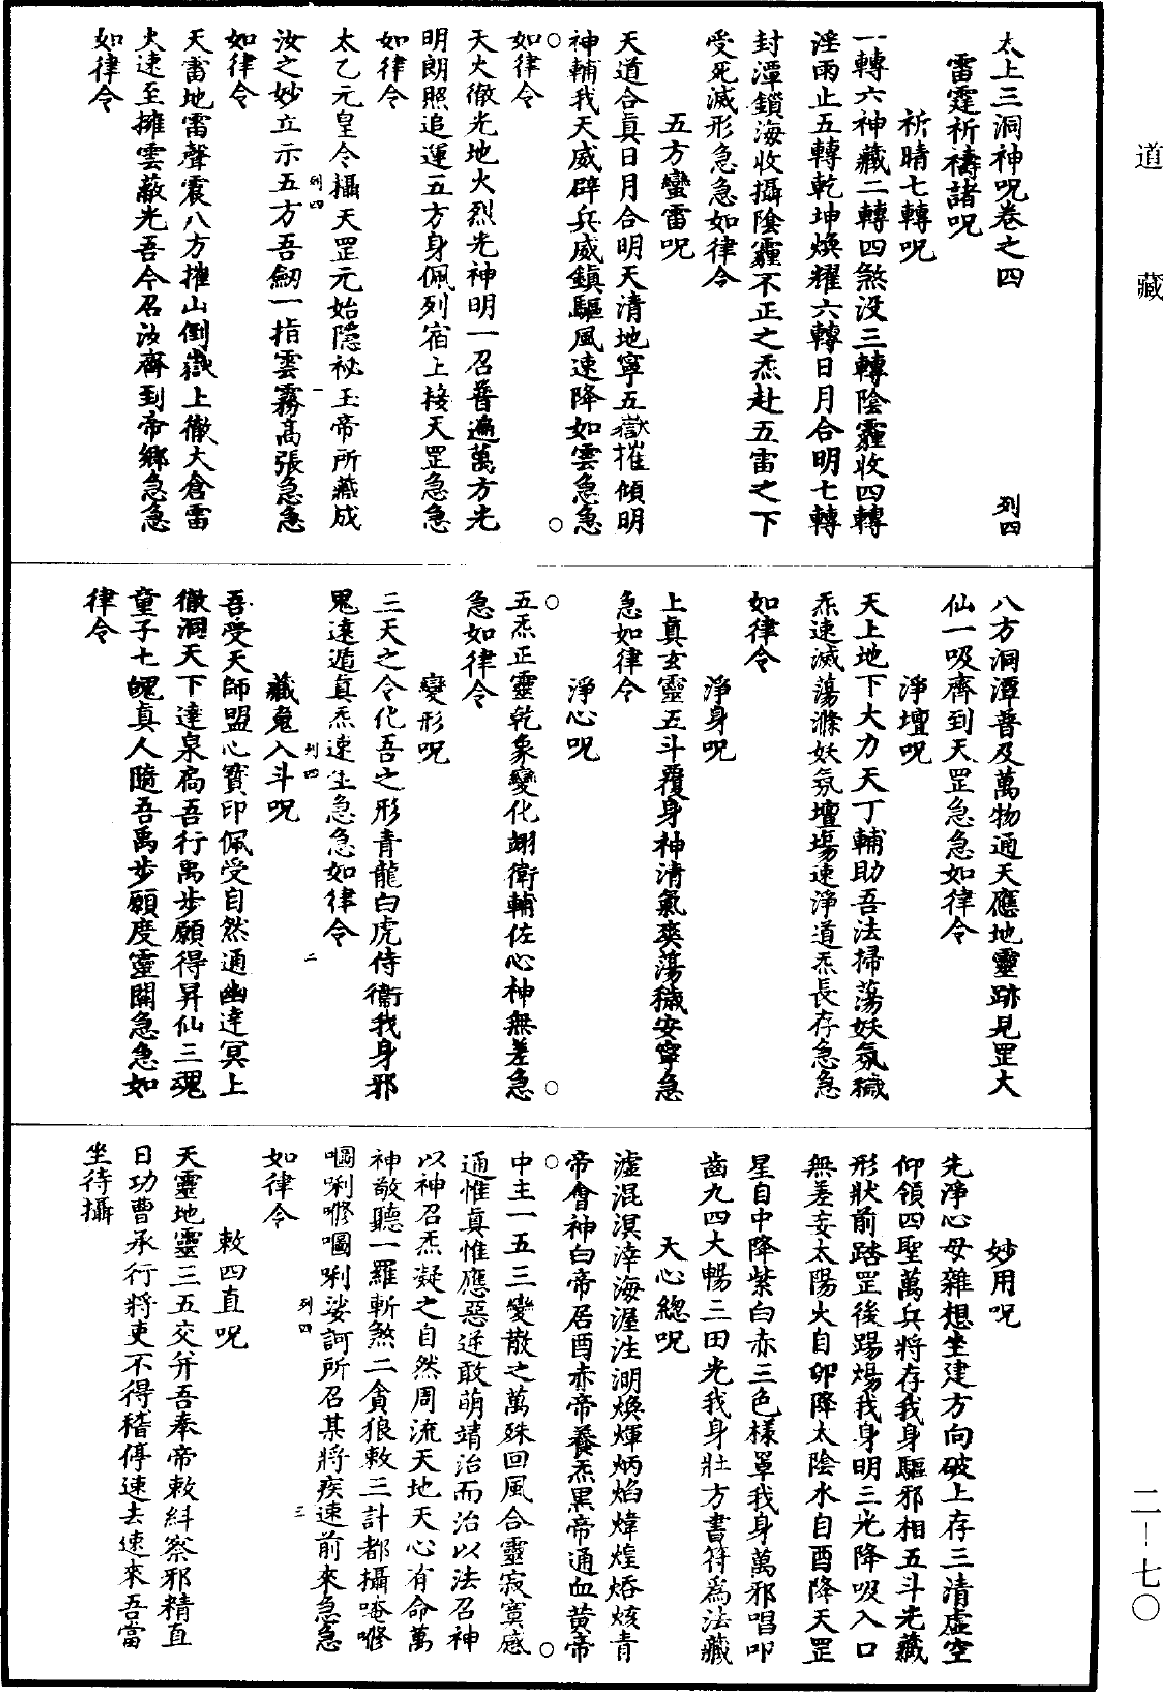 道藏
太上三洞神呪卷之四　列四
雷霆祈禱諸呪
祈晴七轉呪
一轉六神藏二轉四煞没三轉陰霾收四轉
淫雨止五轉乾坤煥耀六轉日月合明七轉
封潭鎖海收攝陰霾不正之炁赴五雷之下
受死滅形急急如律令
五方蠻雷呪
天道合真日月合明天清地寧五嶽摧傾明
神輔我天威辟兵威鎮驅風速降如雲急急
如律令
天火徹光地火烈光神明一召普遍萬方光
明朗照追運五方身佩列宿上接天罡急急
如律令
太乙元皇令攝天罡元始隱祕玉帝所藏成
列四　一
汝之妙立示五方吾劒一指雲霧高張急急
如律令
天雷地雷聲震八方摧山倒嶽上徹大倉雷
火速至擁雲蔽光吾今召汝齊到帝鄉急急
如律令
八方洞潭普及萬物通天應地靈跡見罡大
仙一吸齊到天罡急急如律令
淨壇呪
天上地下大力天丁輔助吾法掃蕩妖氛穢
炁速滅蕩滌妖氛壇場速淨道炁長存急急
如律令
淨身呪
上真玄靈五斗覆身神清氣爽蕩穢安寧急
急如律令
淨心呪
五炁正靈乾象變化翊衛輔佐心神無差急
急如律令
變形呪
三天之令化吾之形青龍白虎侍衞我身邪
鬼遠遁真炁速生急急如律令
列四　二
藏䰟入斗呪
吾受天師盟心寶印佩受自然通幽達冥上
徹洞天下達泉扃吾行禹步願得昇仙三魂
童子七魄真人隨吾禹步願度靈關急急如
律令
妙用呪
先淨心毋雜想坐建方向破上存三清虛空
仰領四聖萬兵將存我身驅邪相五斗光藏
形狀前踏罡後踢煬我身明三光降吸入口
無差妄太陽火自卯降太陰水自酉降天罡
星自中降紫白赤三色樣罩我身萬邪唱叩
齒九四大暢三田光我身壯方書符為法藏
天心總呪
澒混溟涬海渥洼溯煥煇炳焰煒煌焐烗青
帝會神白帝居酉赤帝養炁黑帝通血黄帝
中主一五三變散之萬殊回風合靈寂寞感
通惟真惟應惡逆敢萌靖治而治以法召神
以神召炁凝之自然周流天地天心有命萬
神敬聽一羅斬煞二貪狼敕三計都攝唵㗛
嚪唎㗛嚪唎娑訶所召某將疾速前來急急
列四　三
如律令
敕四直呪
天靈地靈三五交并吾奉帝敕糾察邪精直
日功曹承行將吏不得稽停速去速來吾當
坐待攝
二-七〇